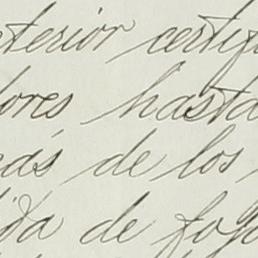 terior certif
ores hasta
eás de los
ida de foja